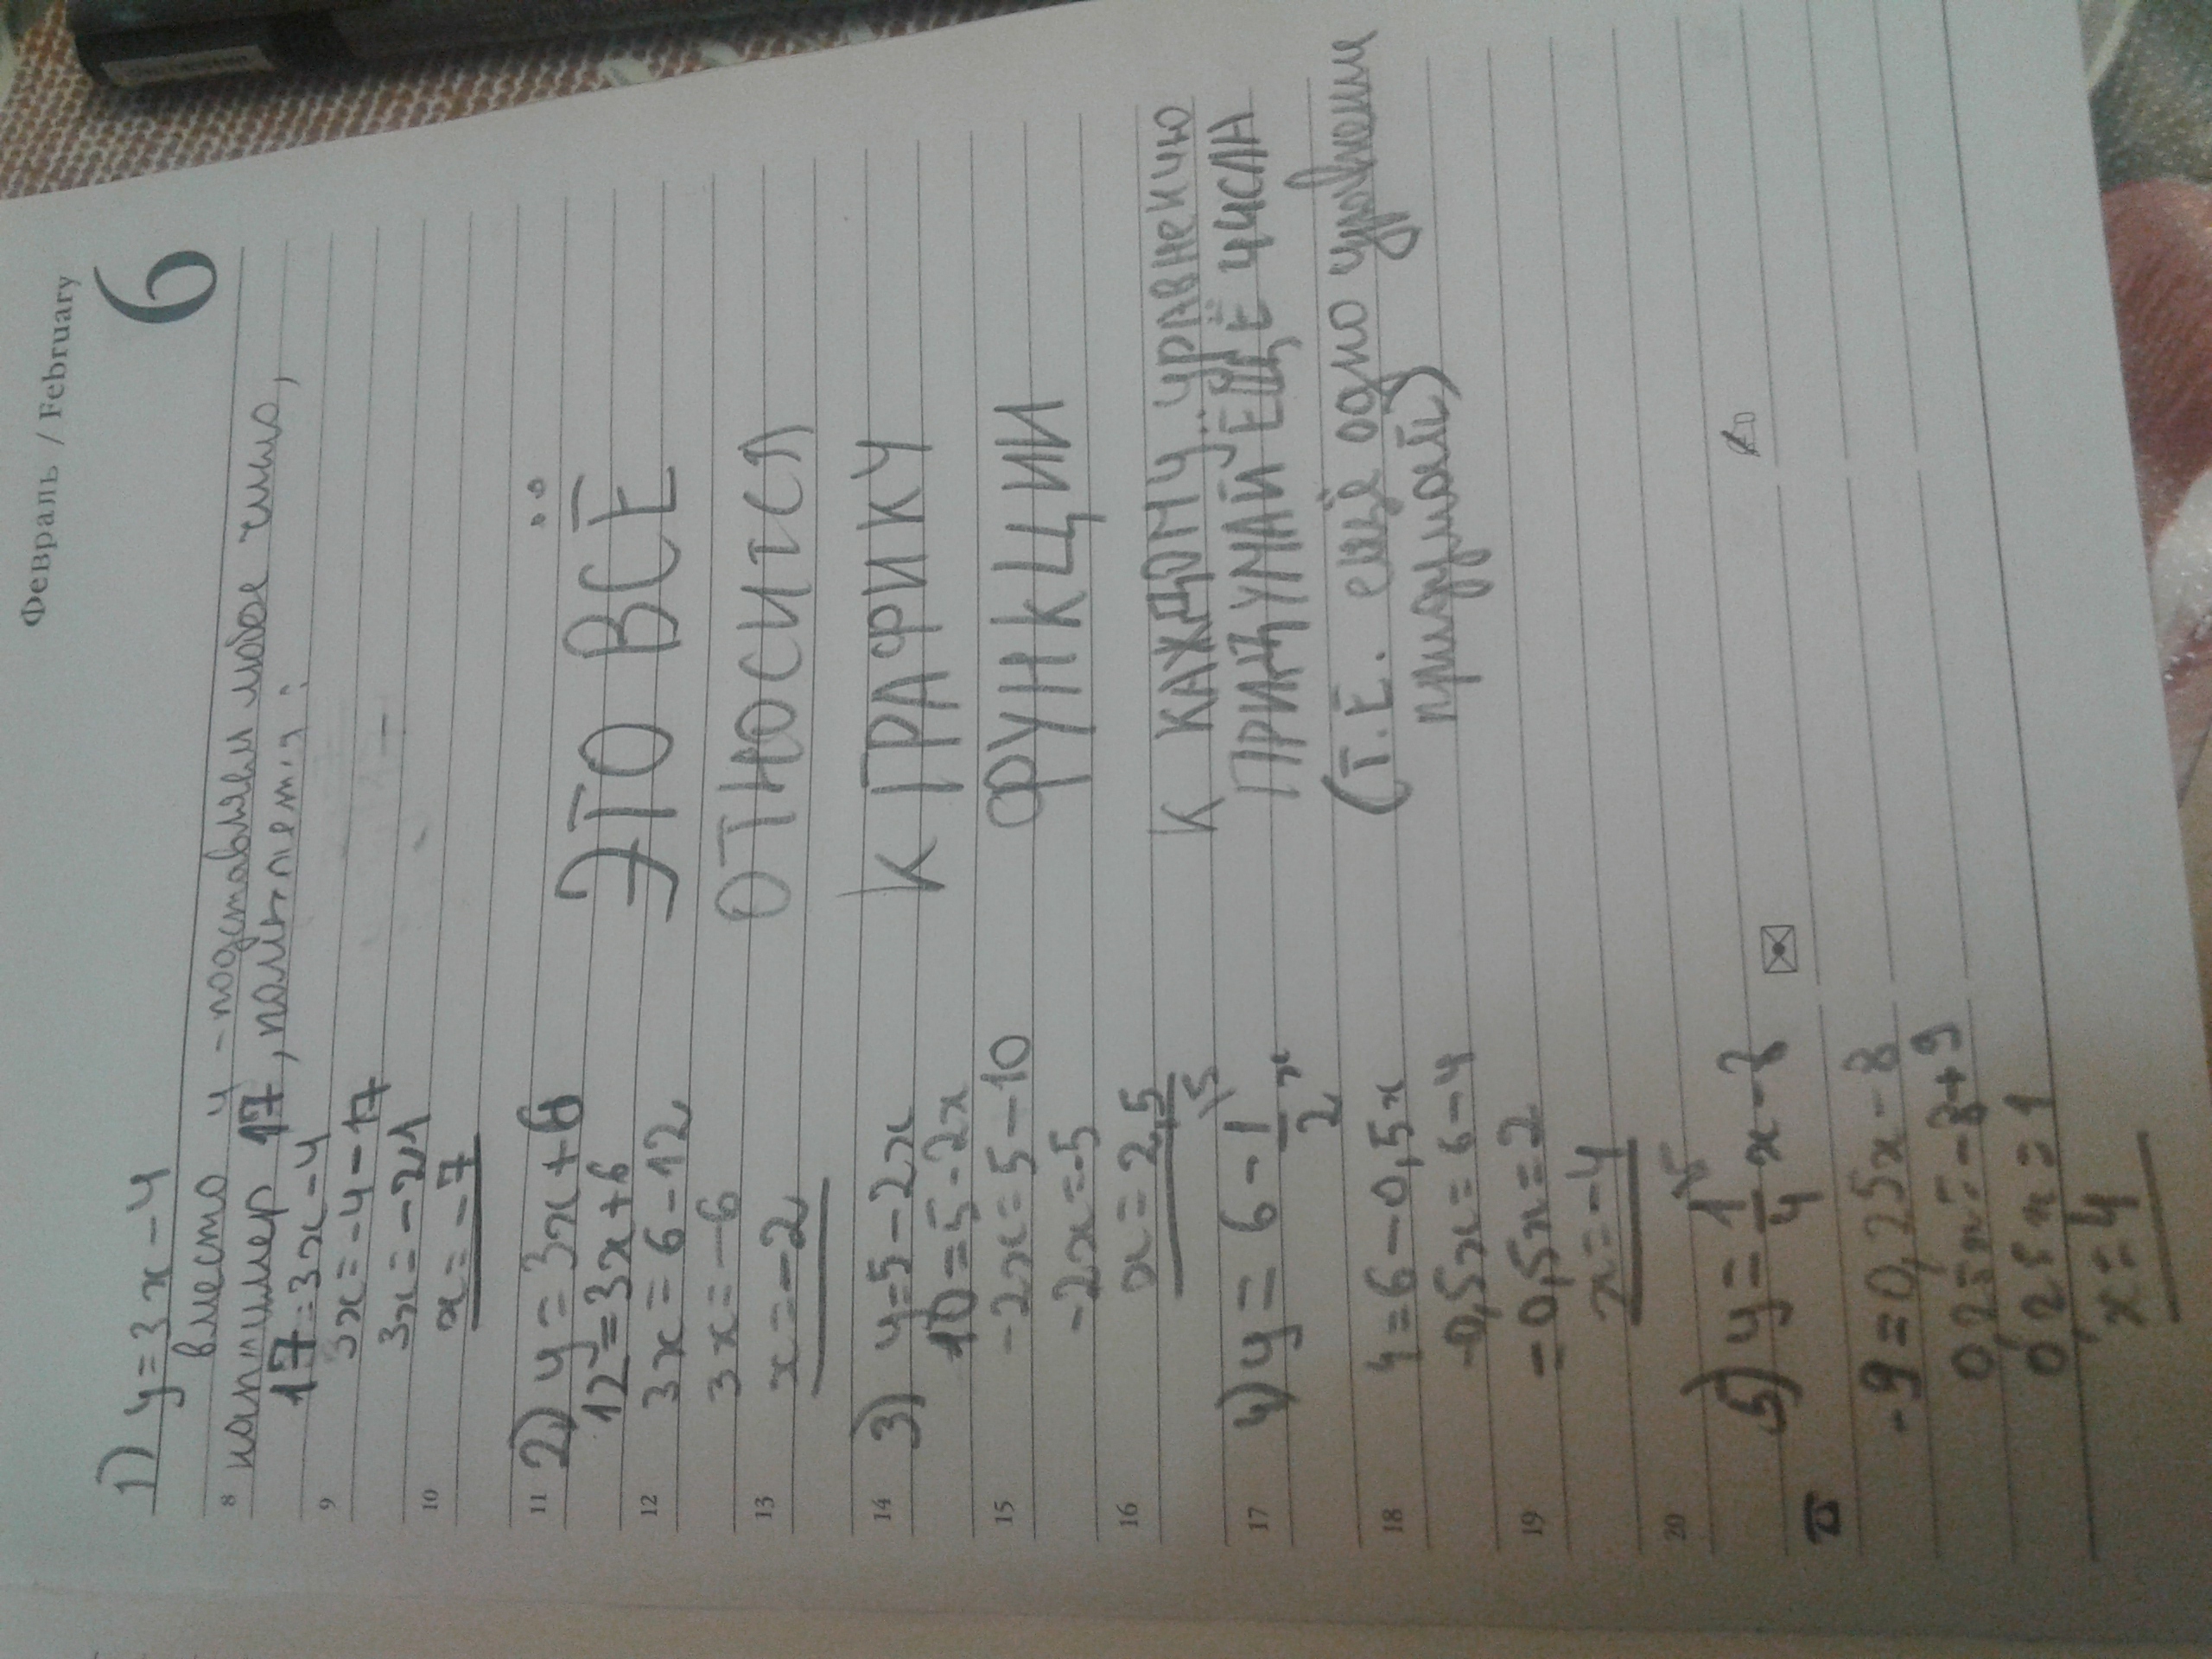 Февраль / February
6
1) y=3x-4
вместо y - подставляем любое число,
например 17, получается:
17=3x-4
3x=-4-17
3x=-21
x=-7
2) y=3x+6
12=3x+6
3x=6-12
3x=-6
x=-2
3) y=5-2x
10=5-2x
-2x=5-10
-2x=-5
x=2,5
4) y=6-1/2x
4=6-0,5x
-0,5x=6-4
=0,5x=2
x=-4
5) y=1/4x-8
-9=0,25x-8
0,25x=-8+9
0,25x=1
x=4
ЭТО ВСЁ
ОТНОСИТСЯ
К ГРАФИКУ
ФУНКЦИИ
К КАЖДОМУ УРАВНЕНИЮ
ПРИДУМАЙ ЕЩЁ ЧИСЛА
(Т.Е. ещё одно уравнение
придумай)
8
9
10
11
12
13
14
15
16
17
18
19
20